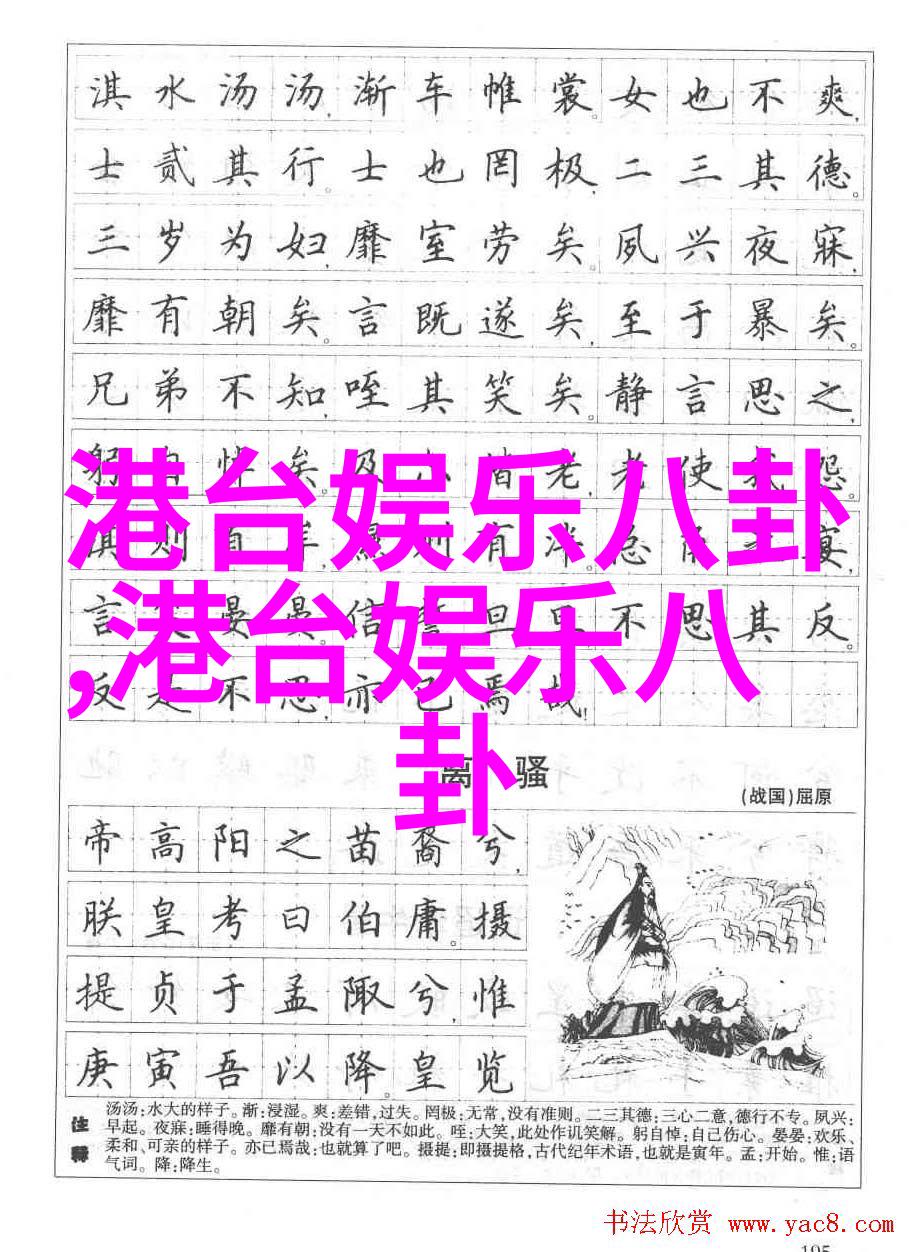 淇水汤汤,渐车帷裳。女也不爽,
士贰其行。士也罔极,二三其德。
三岁为妇,靡室劳矣。夙兴夜寐,
靡有朝矣。言既遂矣,至于暴矣。
兄弟不知,咥其笑矣。静言思之,
躬自悼矣。及尔偕老,老使我怨。
淇则有岸,隰则有泮。总角之宴,
言笑晏晏。信誓旦旦,不思其反。
反是不思,亦已焉哉!
港台娱乐八卦
,港台娱乐八
卦
离骚
(战国)屈原
帝高阳之苗裔兮,
朕皇考曰伯庸。摄
提贞于孟陬兮,惟
庚寅吾以降。皇览
注释
汤汤:水大的样子。渐:浸湿。爽:差错,过失。罔极:无常,没有准则。二三其德:三心二意,德行不专。夙兴:
早起。夜寐:睡得晚。靡有朝:没有一天不如此。咥:大笑,此处作讥笑解。躬自悼:自己伤心。晏晏:欢乐、
柔和、可亲的样子。亦已焉哉:也就算了吧。摄提:即摄提格,古代纪年术语,也就是寅年。孟:开始。惟:语
气词。降:降生。
书法欣赏 www.yac8.com
105